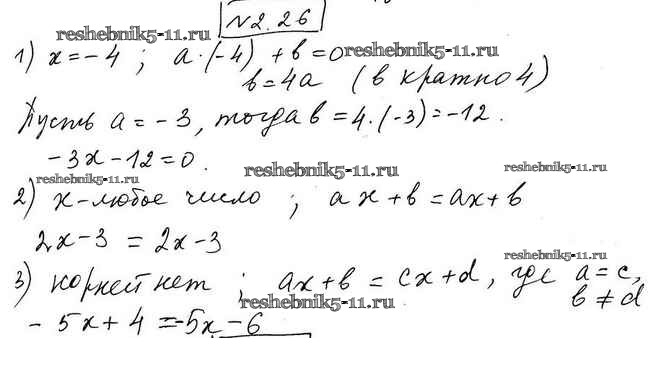 №2.26
reshebnik5-11.ru
1) x = -4 ; a·(-4) + в = 0 reshebnik5-11.ru
в = 4a (в кратно 4)
Пусть a = -3, тогда в = 4·(-3) = -12.
-3x - 12 = 0.
reshebnik5-11.ru reshebnik5-11.ru
reshebnik5-11.ru
2) x - любое число ; ax + в = ax + в
2x - 3 = 2x - 3
reshebnik5-11.ru
3) корней нет ; ax + в = cx + d, где a = c,
в ≠ d
reshebnik5-11.ru
- 5x + 4 = -5x - 6